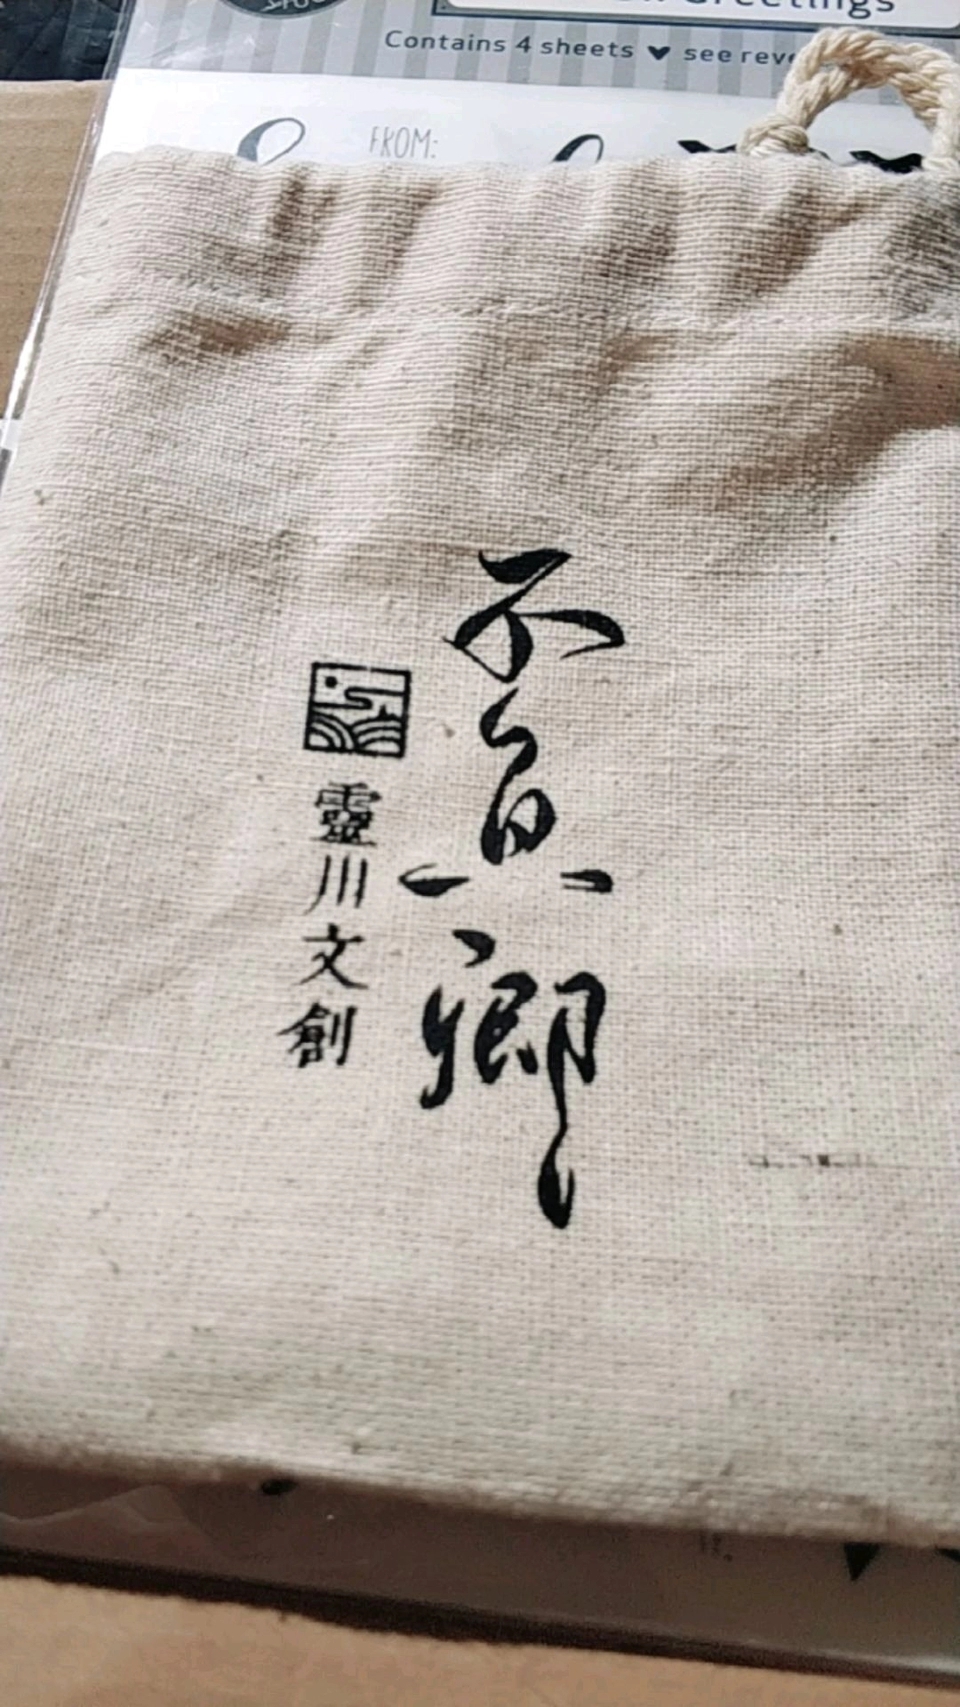 Greetings
Contains 4 sheets ♥ see reve
FROM:
不負卿
靈川文創